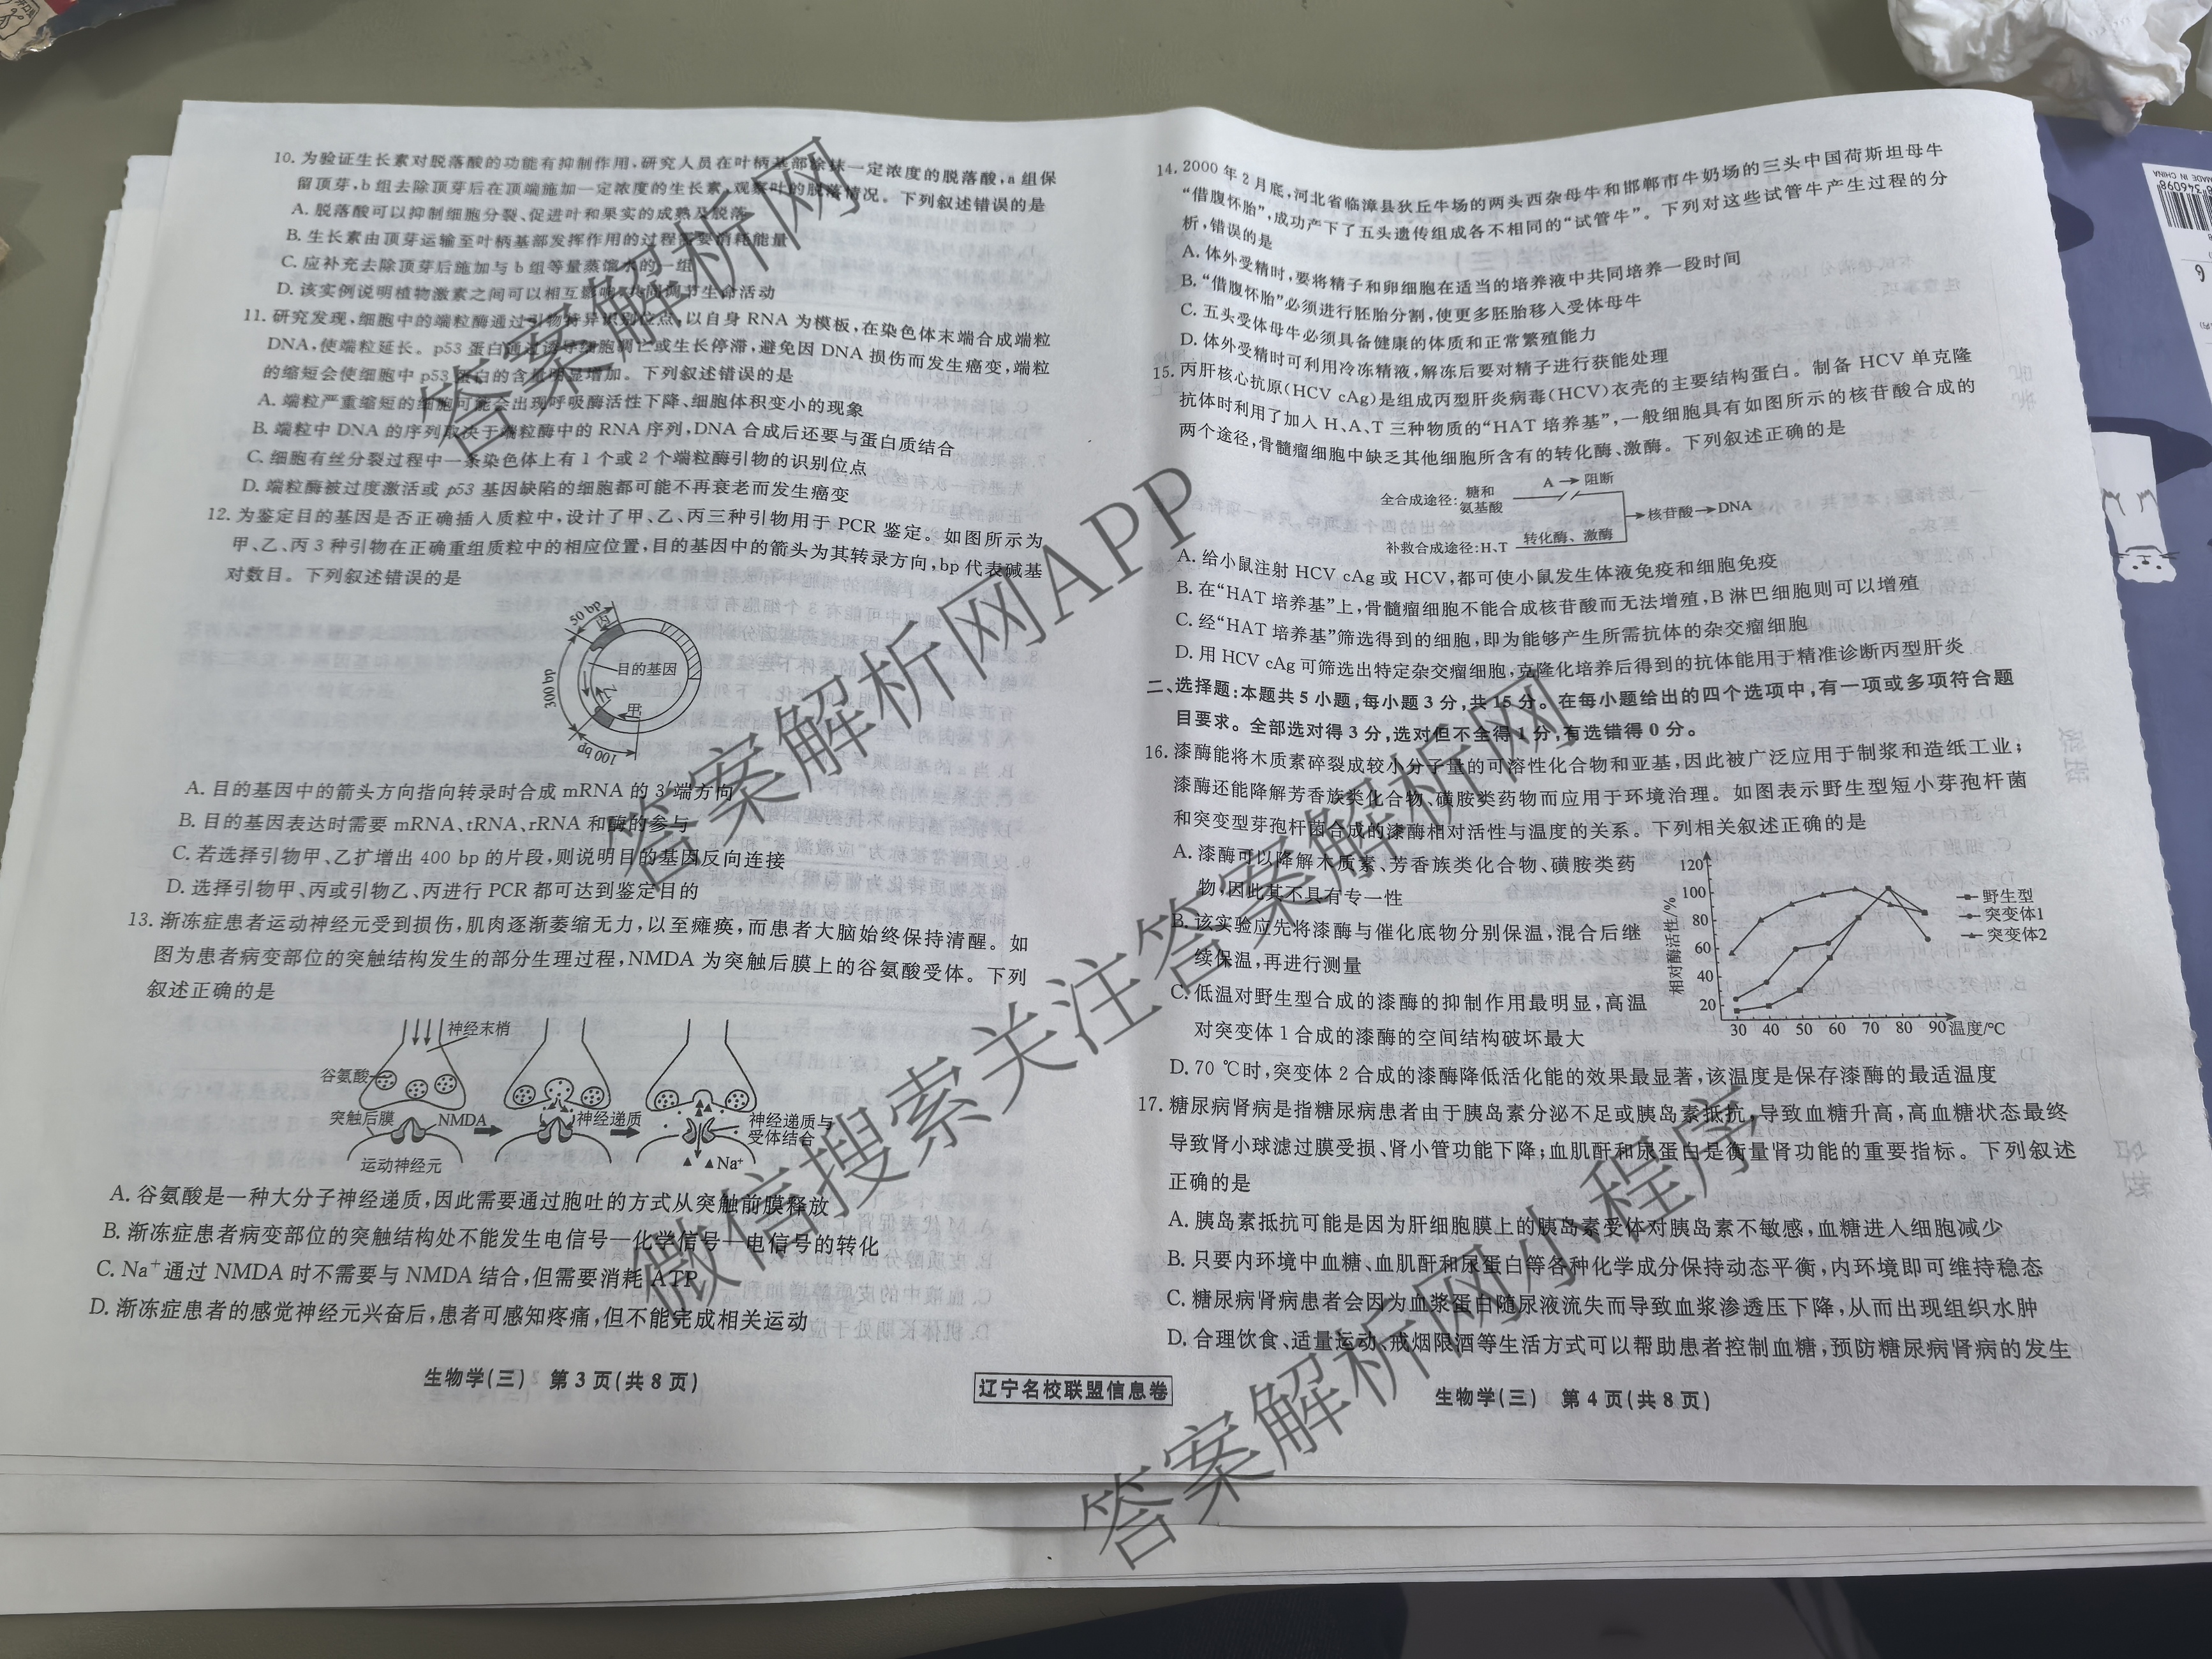 10. 为验证生长素对脱落酸的功能有抑制作用,研究人员在叶柄基部涂抹一定浓度的脱落酸,a 组保
留顶芽,b 组去除顶芽后在顶端施加一定浓度的生长素,观察叶的脱落情况。下列叙述错误的是
A. 脱落酸可以抑制细胞分裂、促进叶和果实的成熟及脱落
B. 生长素由顶芽运输至叶柄基部发挥作用的过程需要消耗能量
C. 应补充去除顶芽后施加与 b 组等量蒸馏水的一组
D. 该实例说明植物激素之间可以相互影响,共同调节生命活动
11. 研究发现,细胞中的端粒酶通过引物特异识别位点,以自身 RNA 为模板,在染色体末端合成端粒
DNA,使端粒延长。p53 蛋白通过诱导细胞凋亡或生长停滞,避免因 DNA 损伤而发生癌变,端粒
的缩短会使细胞中 p53 蛋白的含量明显增加。下列叙述错误的是
A. 端粒严重缩短的细胞可能会出现呼吸酶活性下降、细胞体积变小的现象
B. 端粒中 DNA 的序列取决于端粒酶中的 RNA 序列,DNA 合成后还要与蛋白质结合
C. 细胞有丝分裂过程中一条染色体上有 1 个或 2 个端粒酶引物的识别位点
D. 端粒酶被过度激活或 p53 基因缺陷的细胞都可能不再衰老而发生癌变
12. 为鉴定目的基因是否正确插入质粒中,设计了甲、乙、丙三种引物用于 PCR 鉴定。如图所示为
甲、乙、丙 3 种引物在正确重组质粒中的相应位置,目的基因中的箭头为其转录方向,bp 代表碱基
对数目。下列叙述错误的是
50 bp
丙
目的基因
300 bp
乙
甲
100 bp
A. 目的基因中的箭头方向指向转录时合成 mRNA 的 3′端方向
B. 目的基因表达时需要 mRNA、tRNA、rRNA 和酶的参与
C. 若选择引物甲、乙扩增出 400 bp 的片段,则说明目的基因反向连接
D. 选择引物甲、丙或引物乙、丙进行 PCR 都可达到鉴定目的
13. 渐冻症患者运动神经元受到损伤,肌肉逐渐萎缩无力,以至瘫痪,而患者大脑始终保持清醒。如
图为患者病变部位的突触结构发生的部分生理过程,NMDA 为突触后膜上的谷氨酸受体。下列
叙述正确的是
神经末梢
谷氨酸
突触后膜
NMDA
神经递质
神经递质与
受体结合
运动神经元
Na⁺
A. 谷氨酸是一种大分子神经递质,因此需要通过胞吐的方式从突触前膜释放
B. 渐冻症患者病变部位的突触结构处不能发生电信号—化学信号—电信号的转化
C. Na⁺通过 NMDA 时不需要与 NMDA 结合,但需要消耗 ATP
D. 渐冻症患者的感觉神经元兴奋后,患者可感知疼痛,但不能完成相关运动
生物学(三) 第 3 页(共 8 页)
辽宁名校联盟信息卷
14. 2000 年 2 月底,河北省临漳县狄丘牛场的两头西杂母牛和邯郸市牛奶场的三头中国荷斯坦母牛
“借腹怀胎”,成功产下了五头遗传组成各不相同的“试管牛”。下列对这些试管牛产生过程的分
析,错误的是
A. 体外受精时,要将精子和卵细胞在适当的培养液中共同培养一段时间
B. “借腹怀胎”必须进行胚胎分割,使更多胚胎移入受体母牛
C. 五头受体母牛必须具备健康的体质和正常繁殖能力
D. 体外受精时可利用冷冻精液,解冻后要对精子进行获能处理
15. 丙肝核心抗原(HCV cAg)是组成丙型肝炎病毒(HCV)衣壳的主要结构蛋白。制备 HCV 单克隆
抗体时利用了加入 H、A、T 三种物质的“HAT 培养基”,一般细胞具有如图所示的核苷酸合成的
两个途径,骨髓瘤细胞中缺乏其他细胞所含有的转化酶、激酶。下列叙述正确的是
A → 阻断
全合成途径:糖和
氨基酸
核苷酸 → DNA
转化酶、激酶
补救合成途径:H、T
A. 给小鼠注射 HCV cAg 或 HCV,都可使小鼠发生体液免疫和细胞免疫
B. 在“HAT 培养基”上,骨髓瘤细胞不能合成核苷酸而无法增殖,B 淋巴细胞则可以增殖
C. 经“HAT 培养基”筛选得到的细胞,即为能够产生所需抗体的杂交瘤细胞
D. 用 HCV cAg 可筛选出特定杂交瘤细胞,克隆化培养后得到的抗体能用于精准诊断丙型肝炎
二、选择题:本题共 5 小题,每小题 3 分,共 15 分。在每小题给出的四个选项中,有一项或多项符合题
目要求。全部选对得 3 分,选对但不全得 1 分,有选错得 0 分。
16. 漆酶能将木质素碎裂成较小分子量的可溶性化合物和亚基,因此被广泛应用于制浆和造纸工业;
漆酶还能降解芳香族类化合物、磺胺类药物而应用于环境治理。如图表示野生型短小芽孢杆菌
和突变型芽孢杆菌合成的漆酶相对活性与温度的关系。下列相关叙述正确的是
A. 漆酶可以降解木质素、芳香族类化合物、磺胺类药
物,因此其不具有专一性
B. 该实验应先将漆酶与催化底物分别保温,混合后继
续保温,再进行测量
C. 低温对野生型合成的漆酶的抑制作用最明显,高温
对突变体 1 合成的漆酶的空间结构破坏最大
相对酶活性/%
120
100
80
60
40
20
30 40 50 60 70 80 90 温度/℃
野生型
突变体1
突变体2
D. 70 ℃时,突变体 2 合成的漆酶降低活化能的效果最显著,该温度是保存漆酶的最适温度
17. 糖尿病肾病是指糖尿病患者由于胰岛素分泌不足或胰岛素抵抗,导致血糖升高,高血糖状态最终
导致肾小球滤过膜受损、肾小管功能下降;血肌酐和尿蛋白是衡量肾功能的重要指标。下列叙述
正确的是
A. 胰岛素抵抗可能是因为肝细胞膜上的胰岛素受体对胰岛素不敏感,血糖进入细胞减少
B. 只要内环境中血糖、血肌酐和尿蛋白等各种化学成分保持动态平衡,内环境即可维持稳态
C. 糖尿病肾病患者会因为血浆蛋白随尿液流失而导致血浆渗透压下降,从而出现组织水肿
D. 合理饮食、适量运动、戒烟限酒等生活方式可以帮助患者控制血糖,预防糖尿病肾病的发生
生物学(三) 第 4 页(共 8 页)
答案解析网
答案解析网APP
微信搜索关注答案解析网
答案解析网小程序
MADE IN CHINA